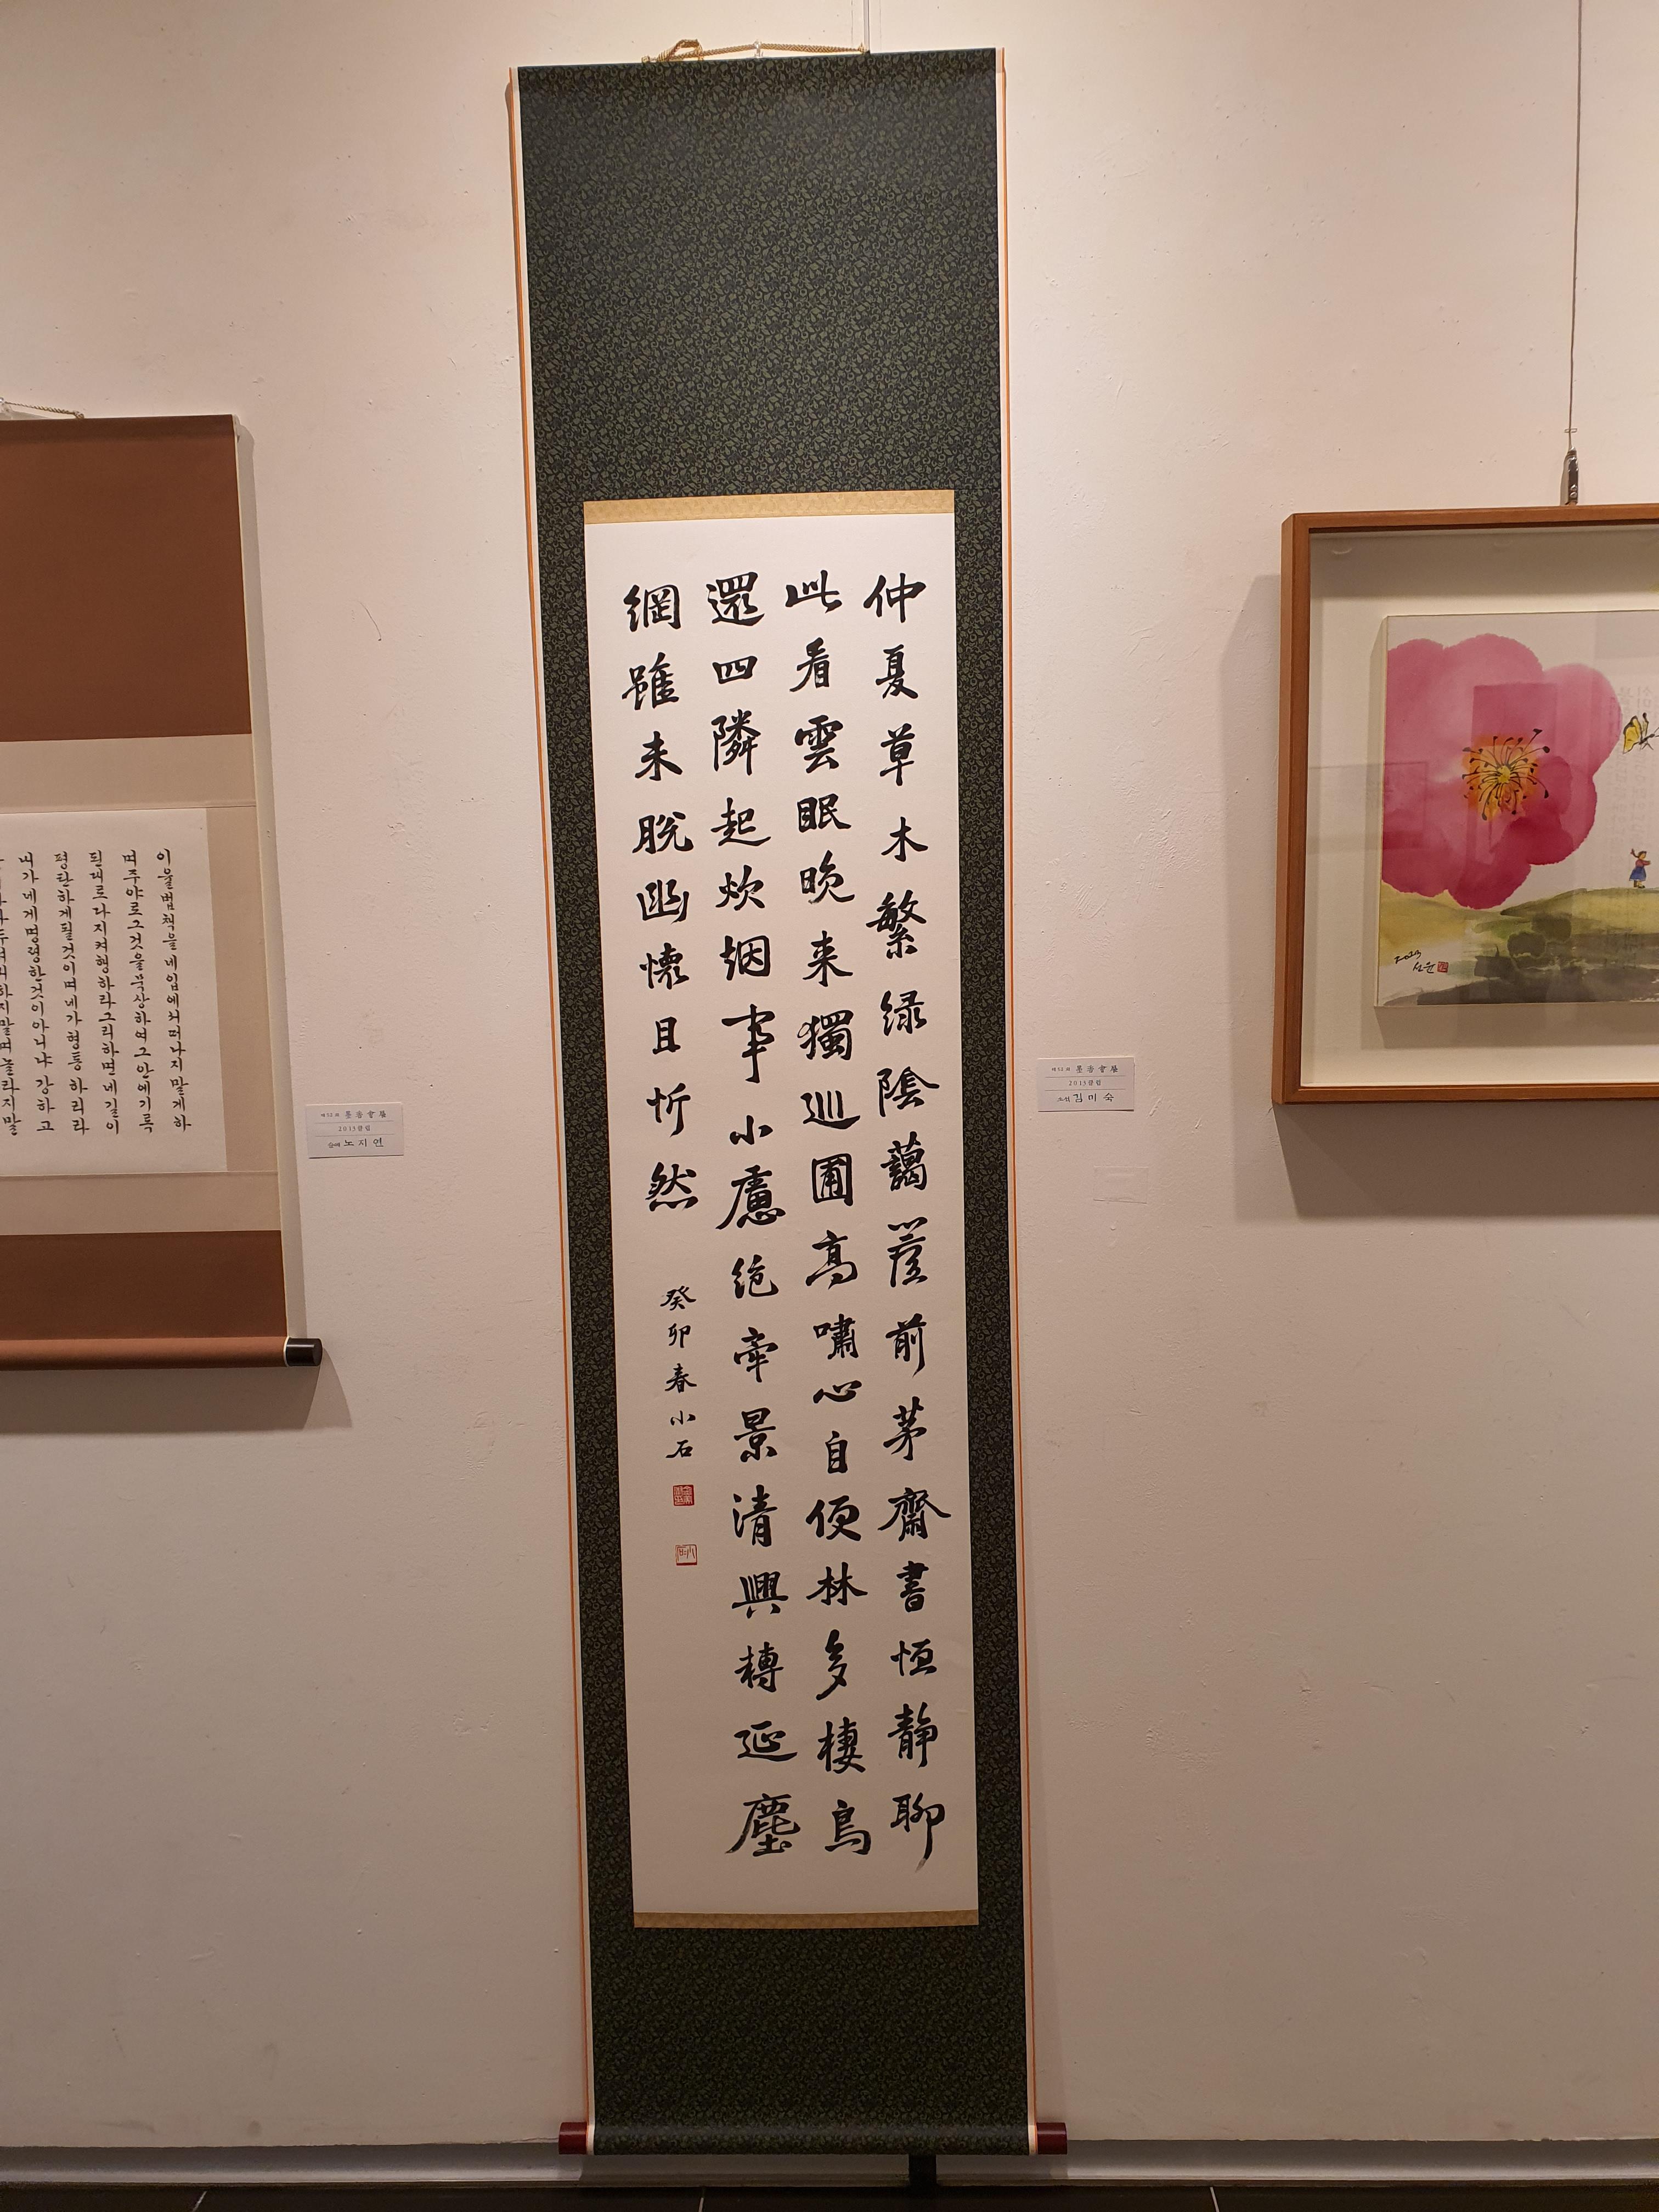 仲夏草木繁緑陰藹簷前茅齋書恒静聊
此看雲眠晩来獨巡圃高嘯心自便林多棲鳥
還四隣起炊烟事小慮絶牽景清興轉延塵
網雖未脫幽懷且忻然
癸卯春小石
이율법책을네입에서떠나지말게하
며주야로그것을묵상하여그안에기록
된대로다지켜행하라그리하면네길이
평탄하게될것이며네가형통하리라
내가네게명령한것이아니냐강하고
두려워하지말며놀라지말
墨香會展
2013클럽
노지연
墨香會展
2013클럽
소석 김미숙
2023